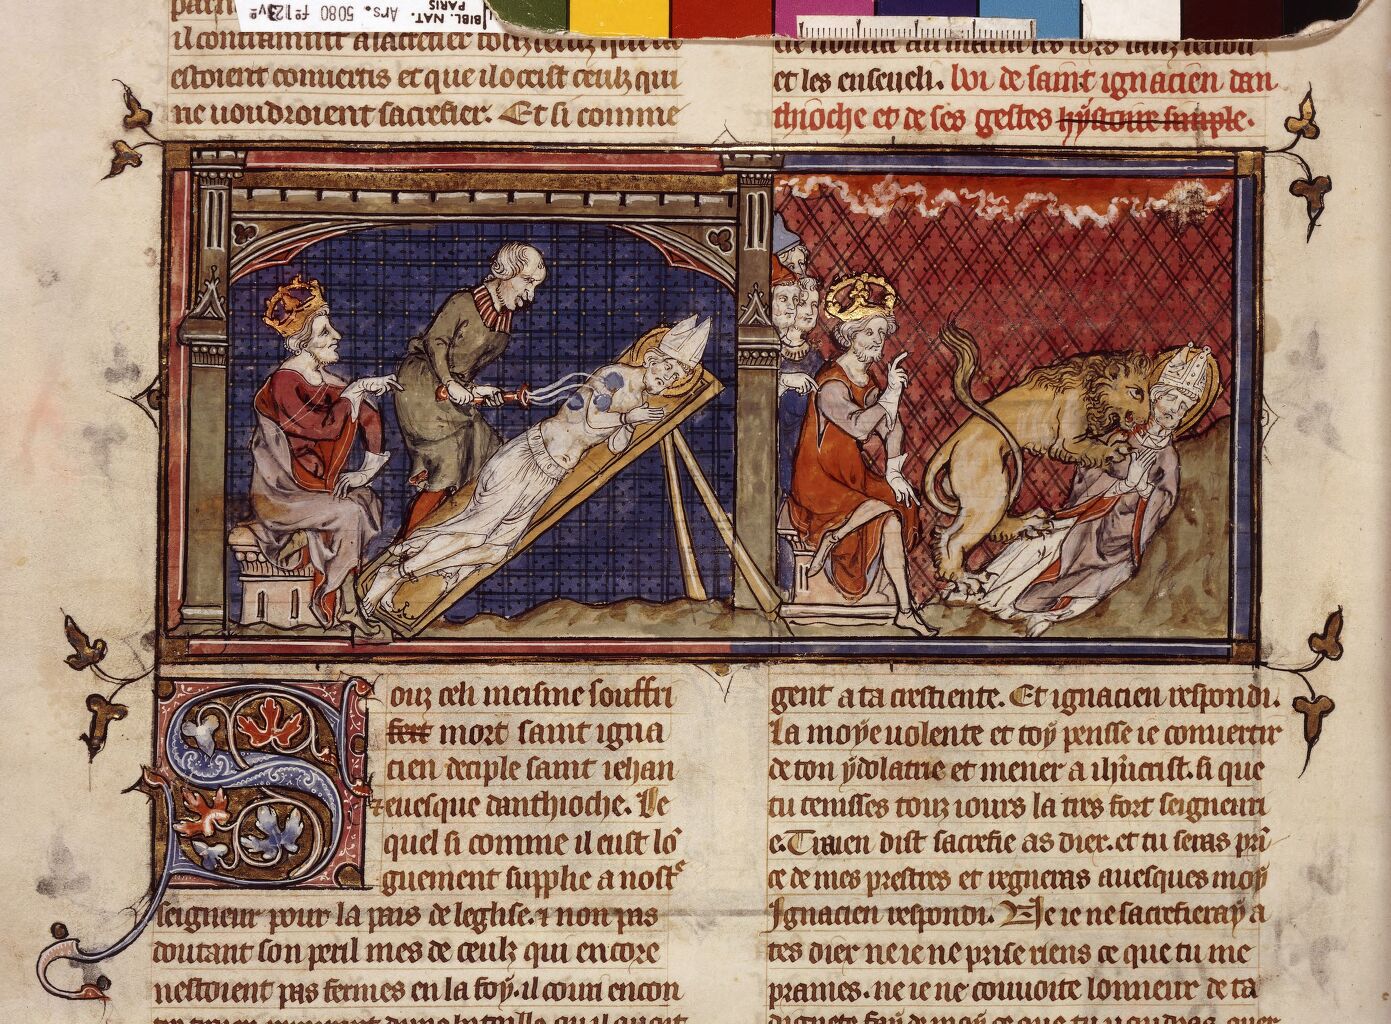 BIBL. NAT.
PARIS
Ars. 5080 fº 123vº
estoient conuertis et que il oceist ceulz qui
ne uoudroient sacrefier. Et si comme
et les enseueli. Loi de saint ignacien dan
thioche et de ses gestes hystoire simple.
Souz celi meisme souffri
mort saint igna
cien deciple saint iehan
euesque danthioche. Le
quel si comme il eust lo
guement supplie a nostᵉ
seigneur pour la pais de leglise. et non pas
doutant son peril mes de ceulz qui encore
nestoient pas fermes en la foy. il couri encon
gent a ta crestiente. Et ignacien respondi.
La moye uolente et toy pensse ie conuertir
de ton ydolatrie et mener a ihūcrist. si que
tu tenisses touz iours la tres fort seigneuri
e. Traien dist sacrefie as diex. et tu seras pri
ce de mes prestres et regneras auesques moy
Ignacien respondi. Ne ie ne sacrefieray a
tes diex ne ie ne prise riens ce que tu me
prames. ne ie ne couuoite lonneur de ta